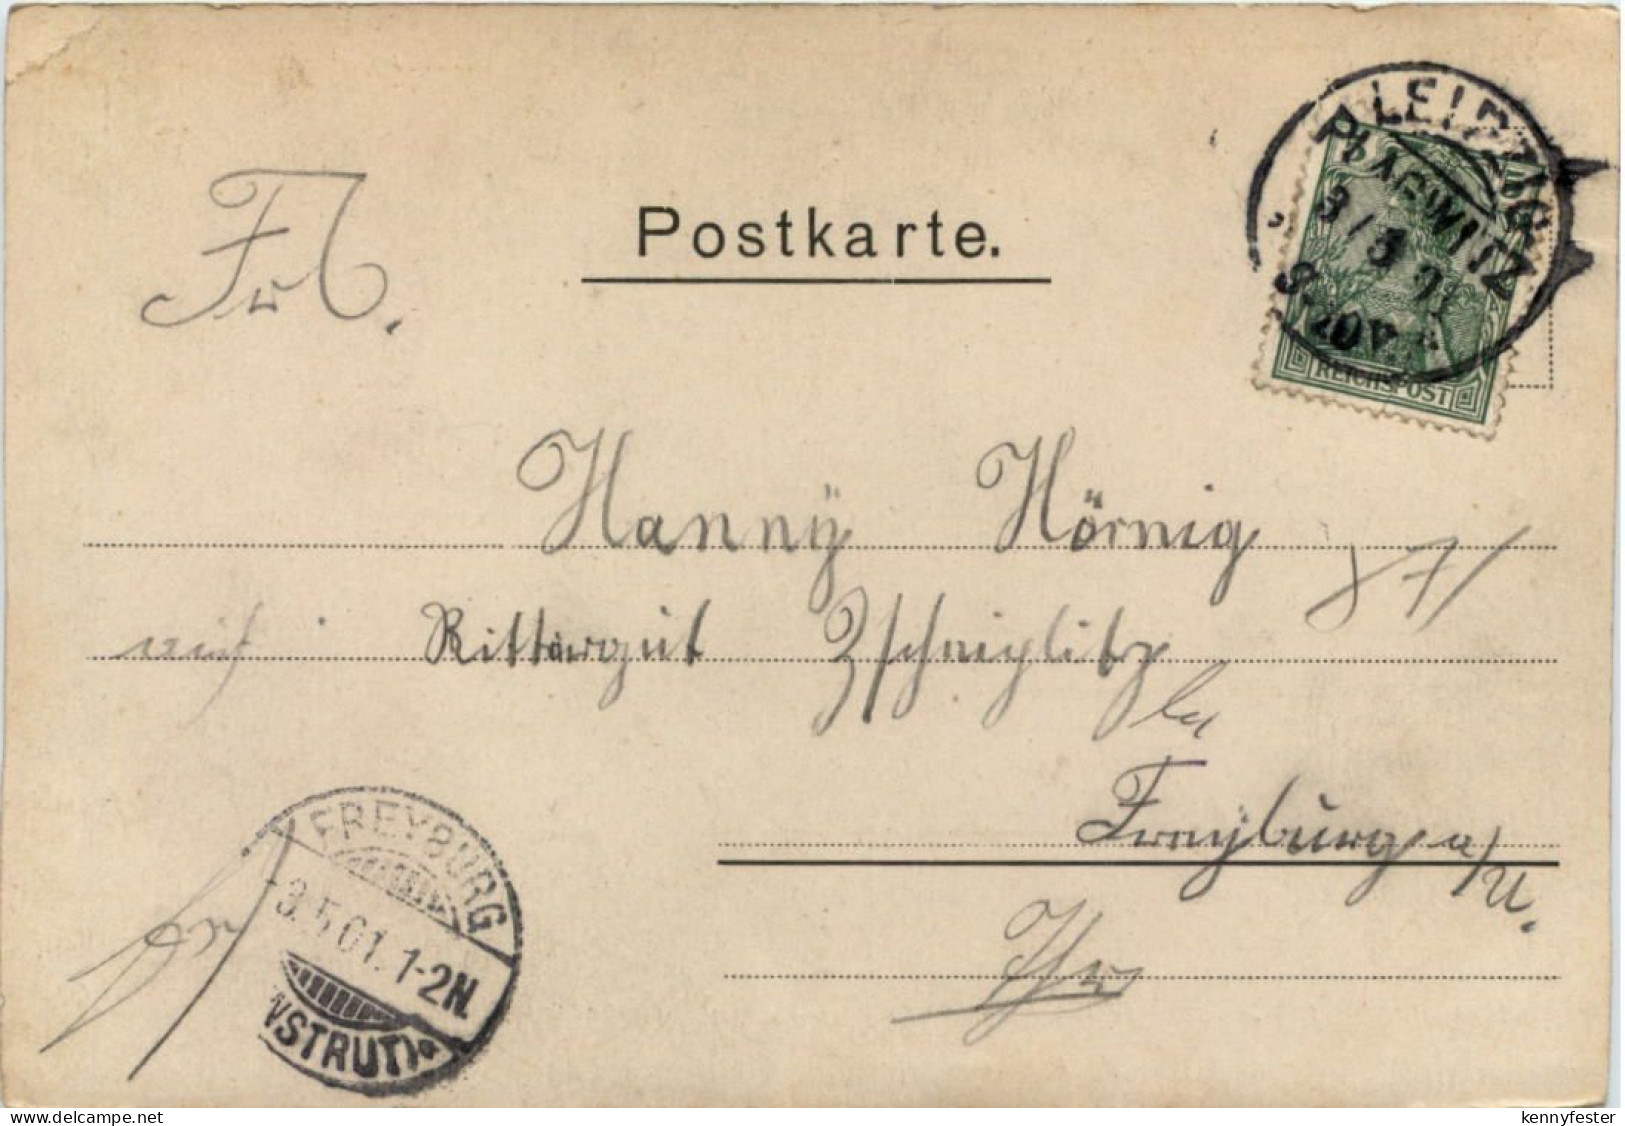 LEIPZIG
PLAGWITZ
3/5 01
8-9 V.
Postkarte.
Frl.
REICHSPOST
Hanny Hörnig
auf Rittergut Zscheiplitz
bei
Freyburg a/U.
Thür
FREYBURG
3.5.01. 1-2N.
(UNSTRUT)
www.delcampe.net
kennyfester